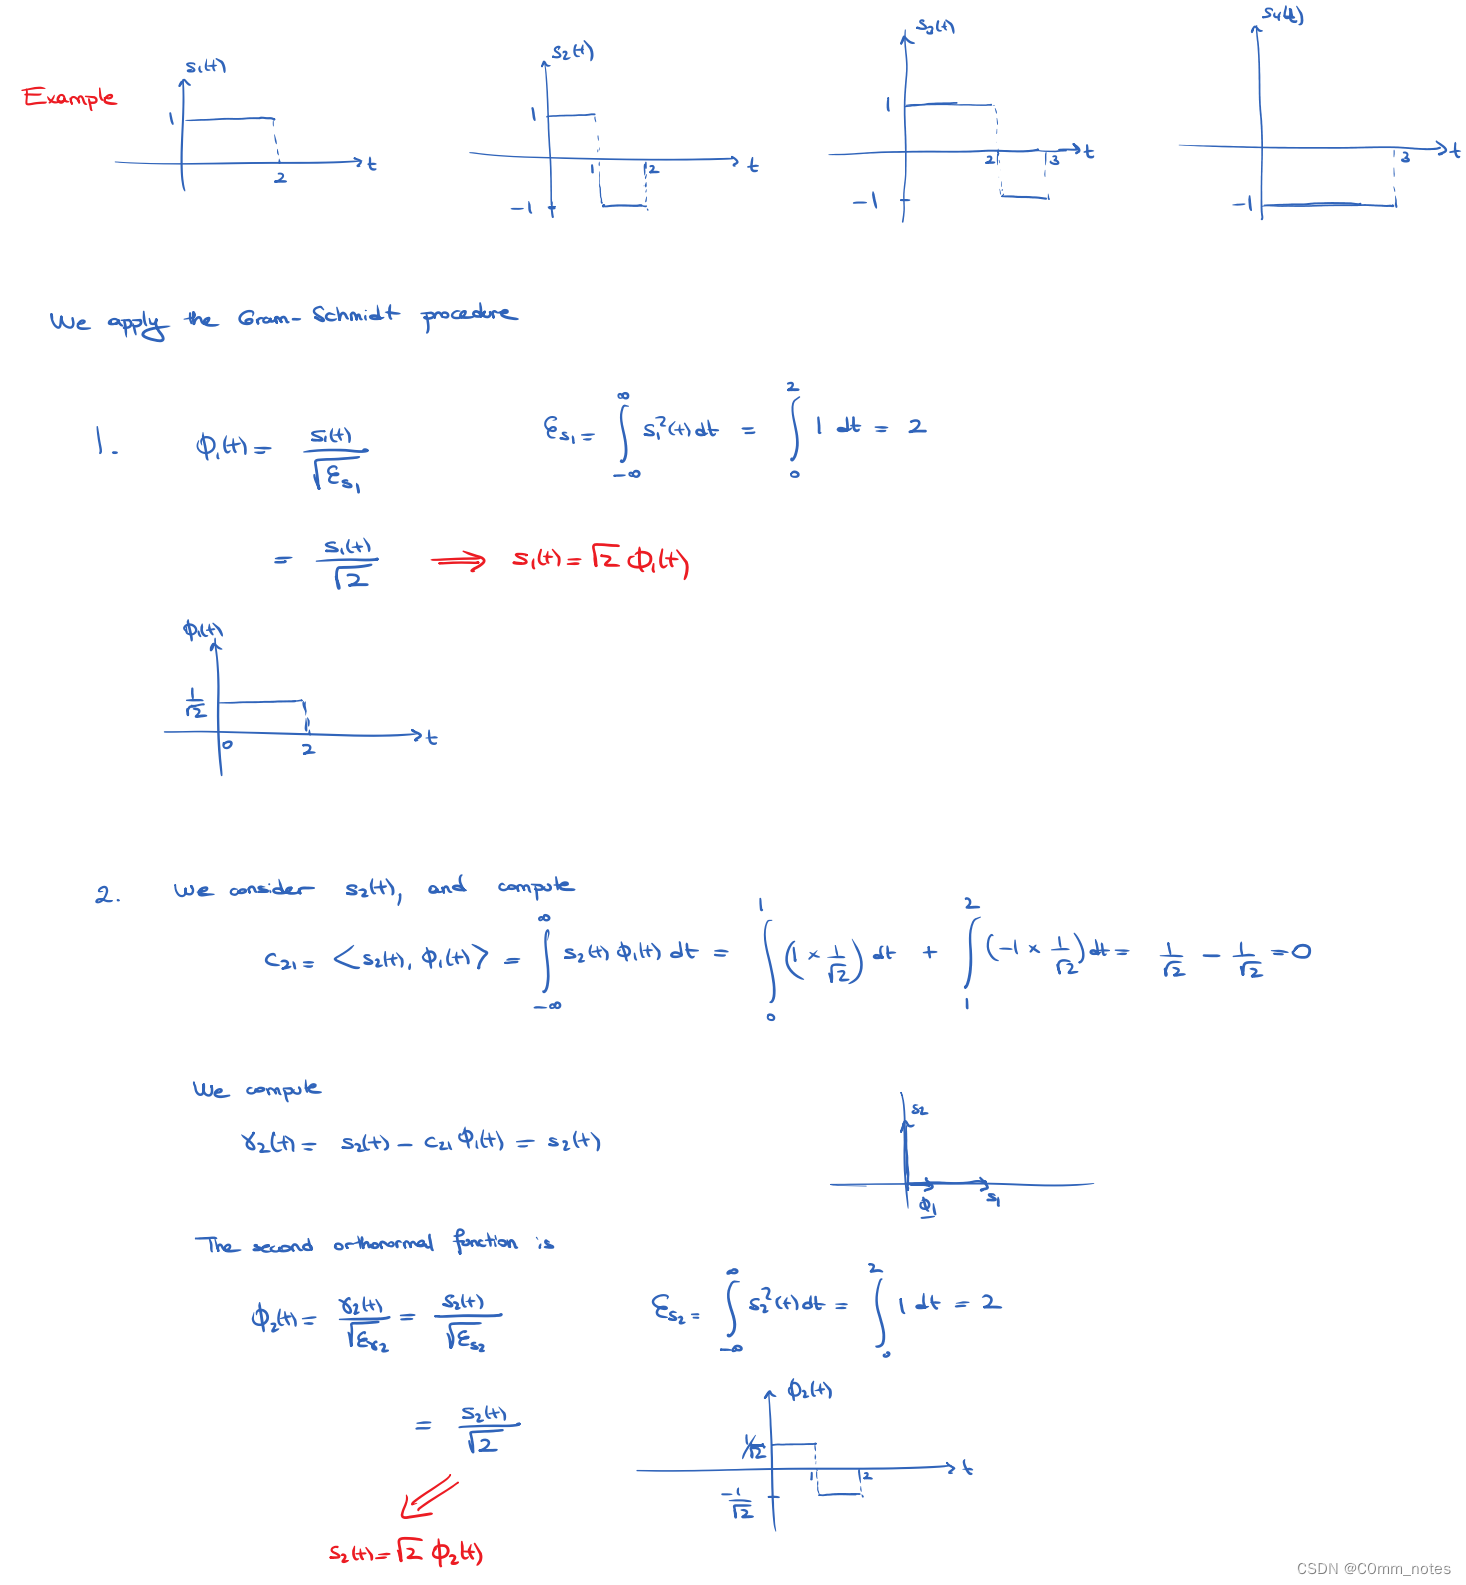 Example
s₁(t)
1
2
t
s₂(t)
1
-1
1
2
t
s₃(t)
1
-1
2
3
t
s₄(t)
-1
3
t
We apply the Gram-Schmidt procedure
1. ϕ₁(t) = s₁(t)/√ℰs₁    ℰs₁ = ∫_{-∞}^{∞} s₁²(t) dt = ∫_0^2 1 dt = 2
= s₁(t)/√2 ⟹ s₁(t) = √2 ϕ₁(t)
ϕ₁(t)
1/√2
0
2
t
2. We consider s₂(t), and compute
c₂₁ = <s₂(t), ϕ₁(t)> = ∫_{-∞}^{∞} s₂(t) ϕ₁(t) dt = ∫_0^1 (1 × 1/√2) dt + ∫_1^2 (-1 × 1/√2) dt = 1/√2 - 1/√2 = 0
We compute
γ₂(t) = s₂(t) - c₂₁ ϕ₁(t) = s₂(t)
s₂
ϕ₁
s₁
The second orthonormal function is
ϕ₂(t) = γ₂(t)/√ℰγ₂ = s₂(t)/√ℰs₂    ℰs₂ = ∫_{-∞}^{∞} s₂²(t) dt = ∫_0^2 1 dt = 2
= s₂(t)/√2
ϕ₂(t)
1/√2
-1/√2
1
2
t
s₂(t) = √2 ϕ₂(t)
CSDN @C0mm_notes